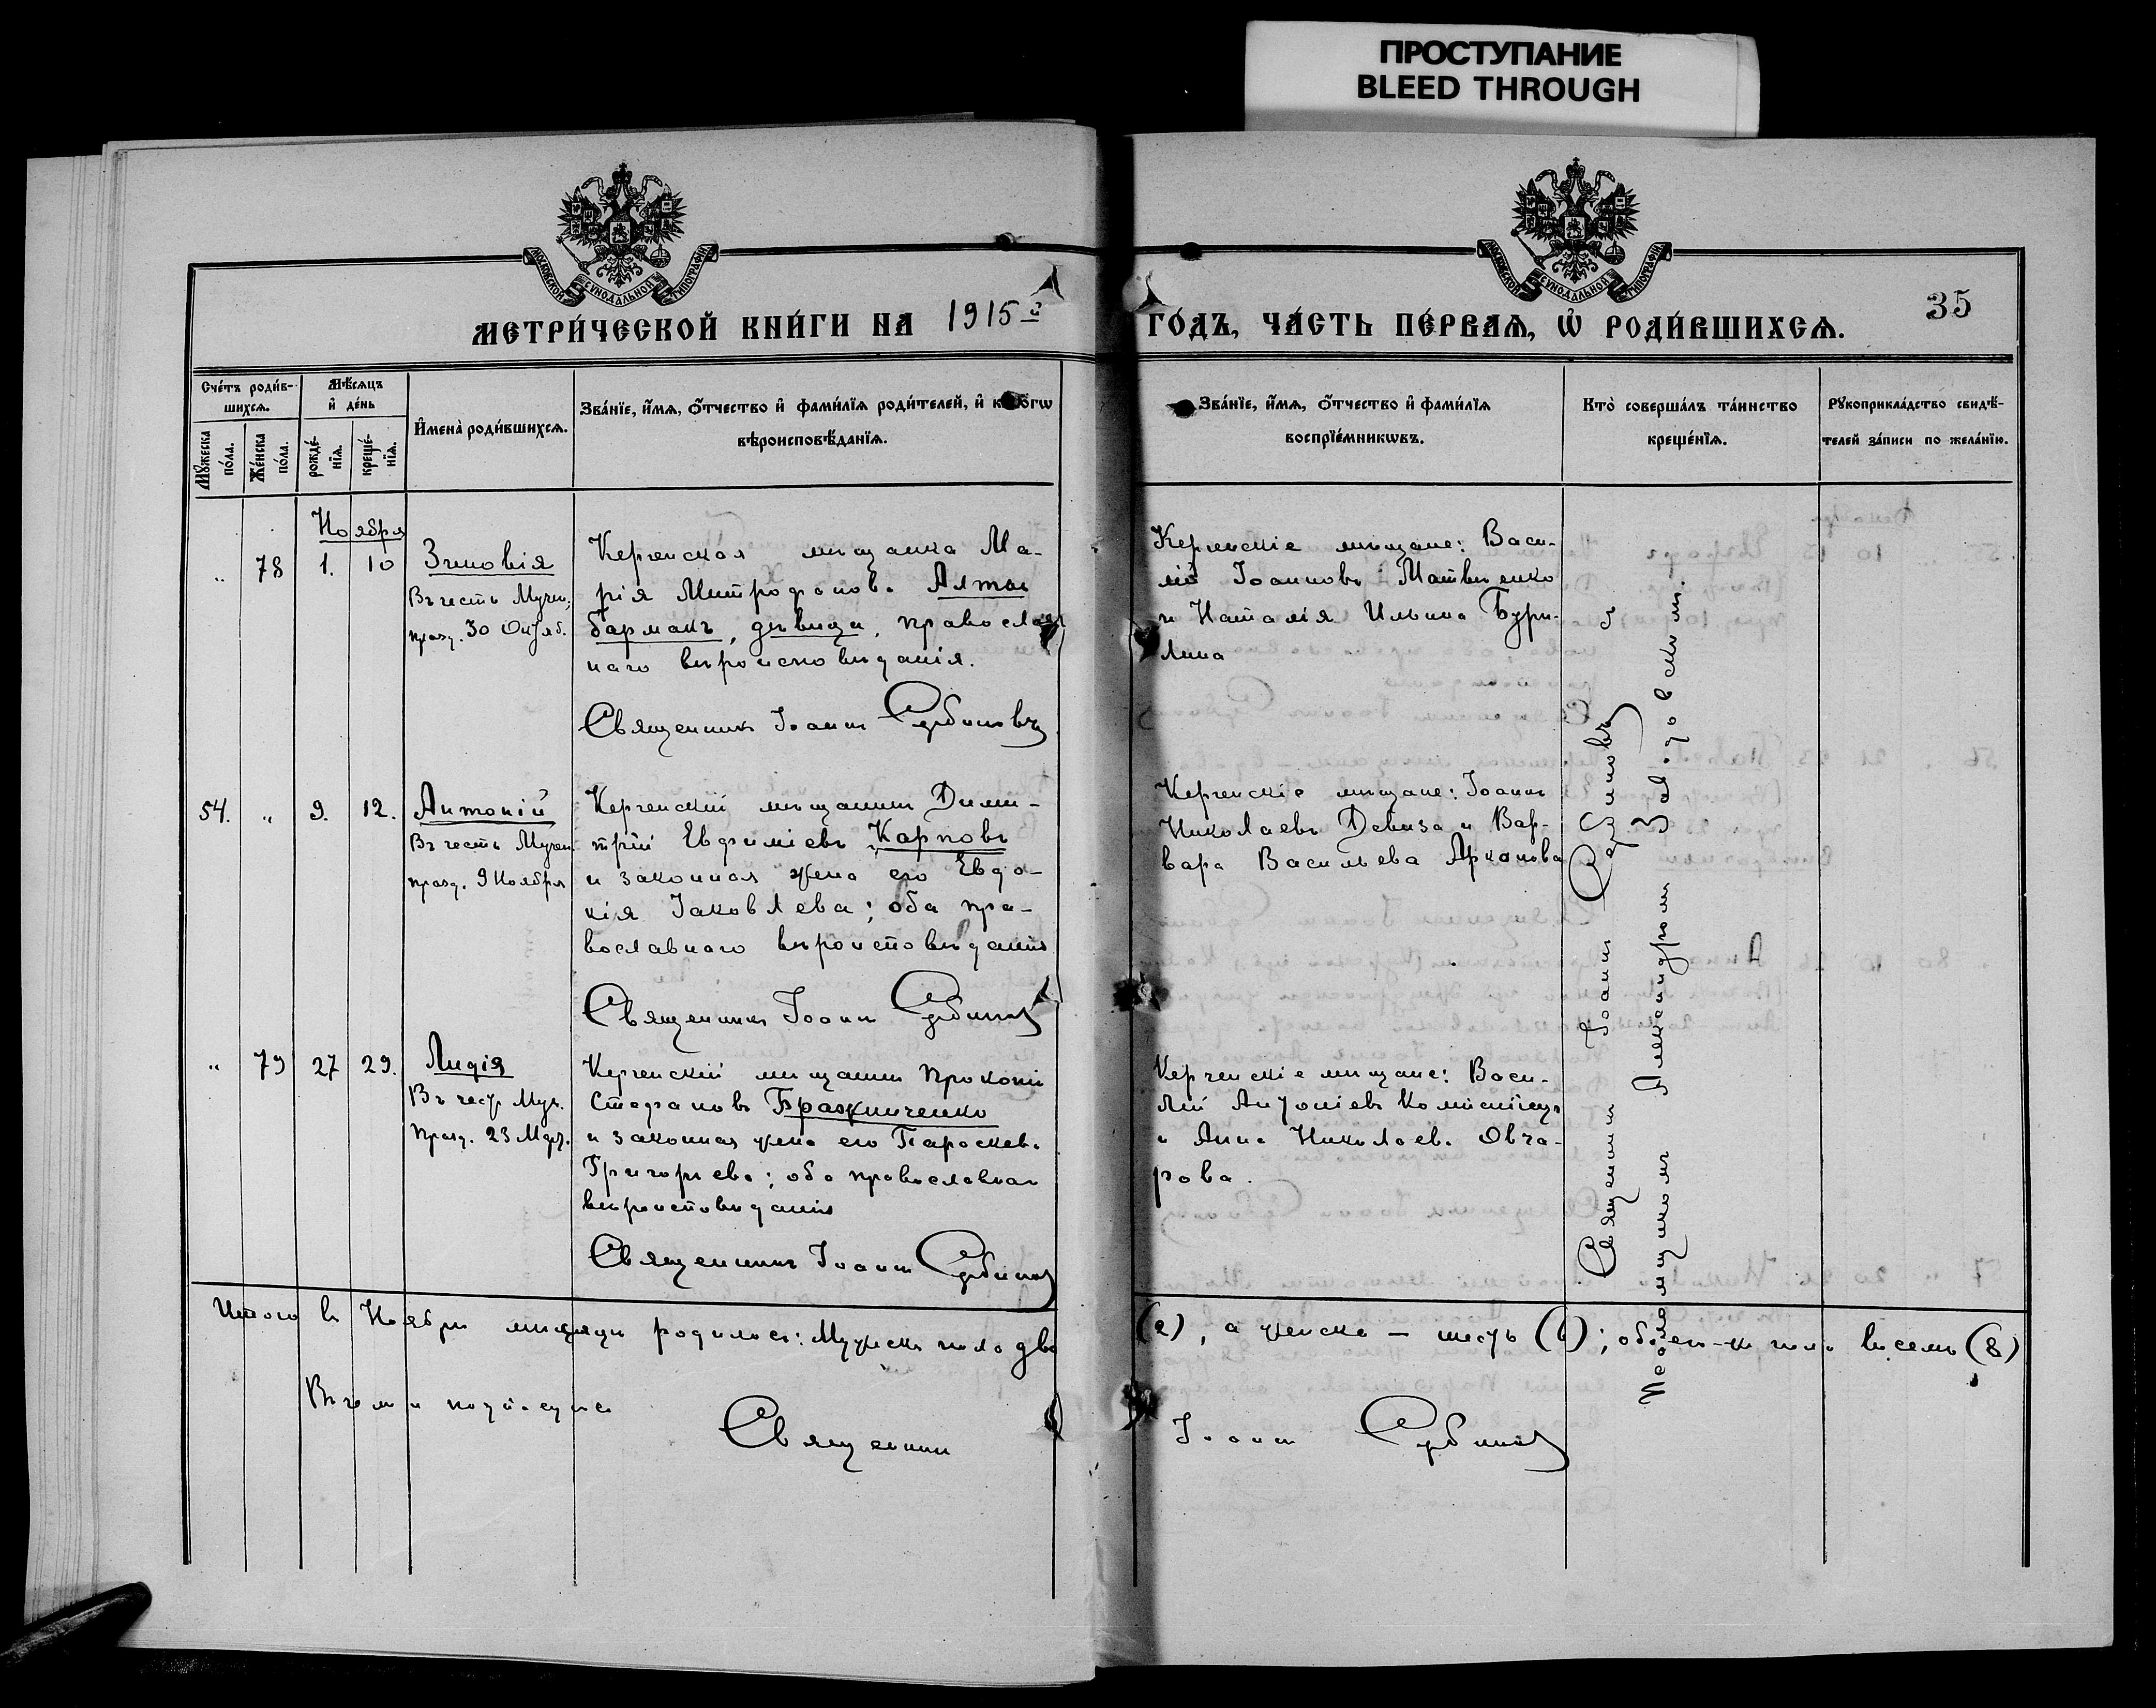 ПРОСТУПАНИЕ
BLEED THROUGH
МОСКОВСКОЙ СѴНОДАЛЬНОЙ ТИПОГРАФІИ
МОСКОВСКОЙ СѴНОДАЛЬНОЙ ТИПОГРАФІИ
35
МЕТРИ́ЧЕСКОЙ КНИ́ГИ НА 1915й ГО́ДЪ, ЧА́СТЬ ПЕ́РВАѦ, Ѡ҆ РОДИ́ВШИХСѦ.
Сче́тъ роди́в-
шихсѧ.
Мꙋ́жеска
по́ла.
Же́нска
по́ла.
Мѣ́сѧцъ
и҆ де́нь
рожде́-
нїѧ.
креще́-
нїѧ.
И҆мена̀ роди́вшихсѧ.
Зва́нїе, и҆́мѧ, ѻ҆́тчество и҆ фами́лїѧ роди́телей, и҆ како́гѡ
вѣроисповѣ́данїѧ.
Зва́нїе, и҆́мѧ, ѻ҆́тчество и҆ фами́лїѧ
воспрїе́мникѡвъ.
Кто̀ соверша́лъ та́инство
креще́нїѧ.
Рꙋкоприкла́дство свидѣ́-
телей за́писи по жела́нїю.
Ноября
„ 78 1. 10 Зиновія
Въ честь Мучен;
празд. 30 Октяб.
Керченская мѣщанка Ма-
рія Митрофанова Алтын
бармакъ, дѣвица, православ
наго вѣроисповѣданія.
Священникъ Іоаннъ Сербиновъ
Керченскіе мѣщане: Васи-
лій Іоанновъ Матвѣенко
и Наталія Ильина Бури-
лина
54. „ 9. 12. Антоній
Въ честь Мучен.
празд. 9 Ноября
Керченскій мѣщанинъ Дими-
трій Евфиміевъ Карповъ
и законная жена его Евдо-
кія Іаковлева; оба пра-
вославнаго вѣроисповѣданія
Священникъ Іоаннъ Сербиновъ
Керченскіе мѣщане: Іоаннъ
Николаевъ Девиза и Вар-
вара Васильева Арканова
„ 79 27 29. Лидія
Въ честь Муч.
празд. 23 Март.
Керченскій мѣщанинъ Прокопій
Стефановъ Бражниченко
и законная жена его Параскева
Григорьева; оба православнаго
вѣроисповѣданія
Священникъ Іоаннъ Сербиновъ
Керченскіе мѣщане: Васи-
лій Антоніевъ
и Анна Николаева Овча-
рова.
Священникъ Іоаннъ Сербиновъ
съ
Псаломщикомъ Александромъ Завадовскимъ.
Итого въ Ноябрѣ мѣсяцѣ родилось: Мужеска пола два (2), а женска – шесть (6); обоего-же пола восемь (8)
Въ чемъ и подписуемся
Священникъ Іоаннъ Сербиновъ